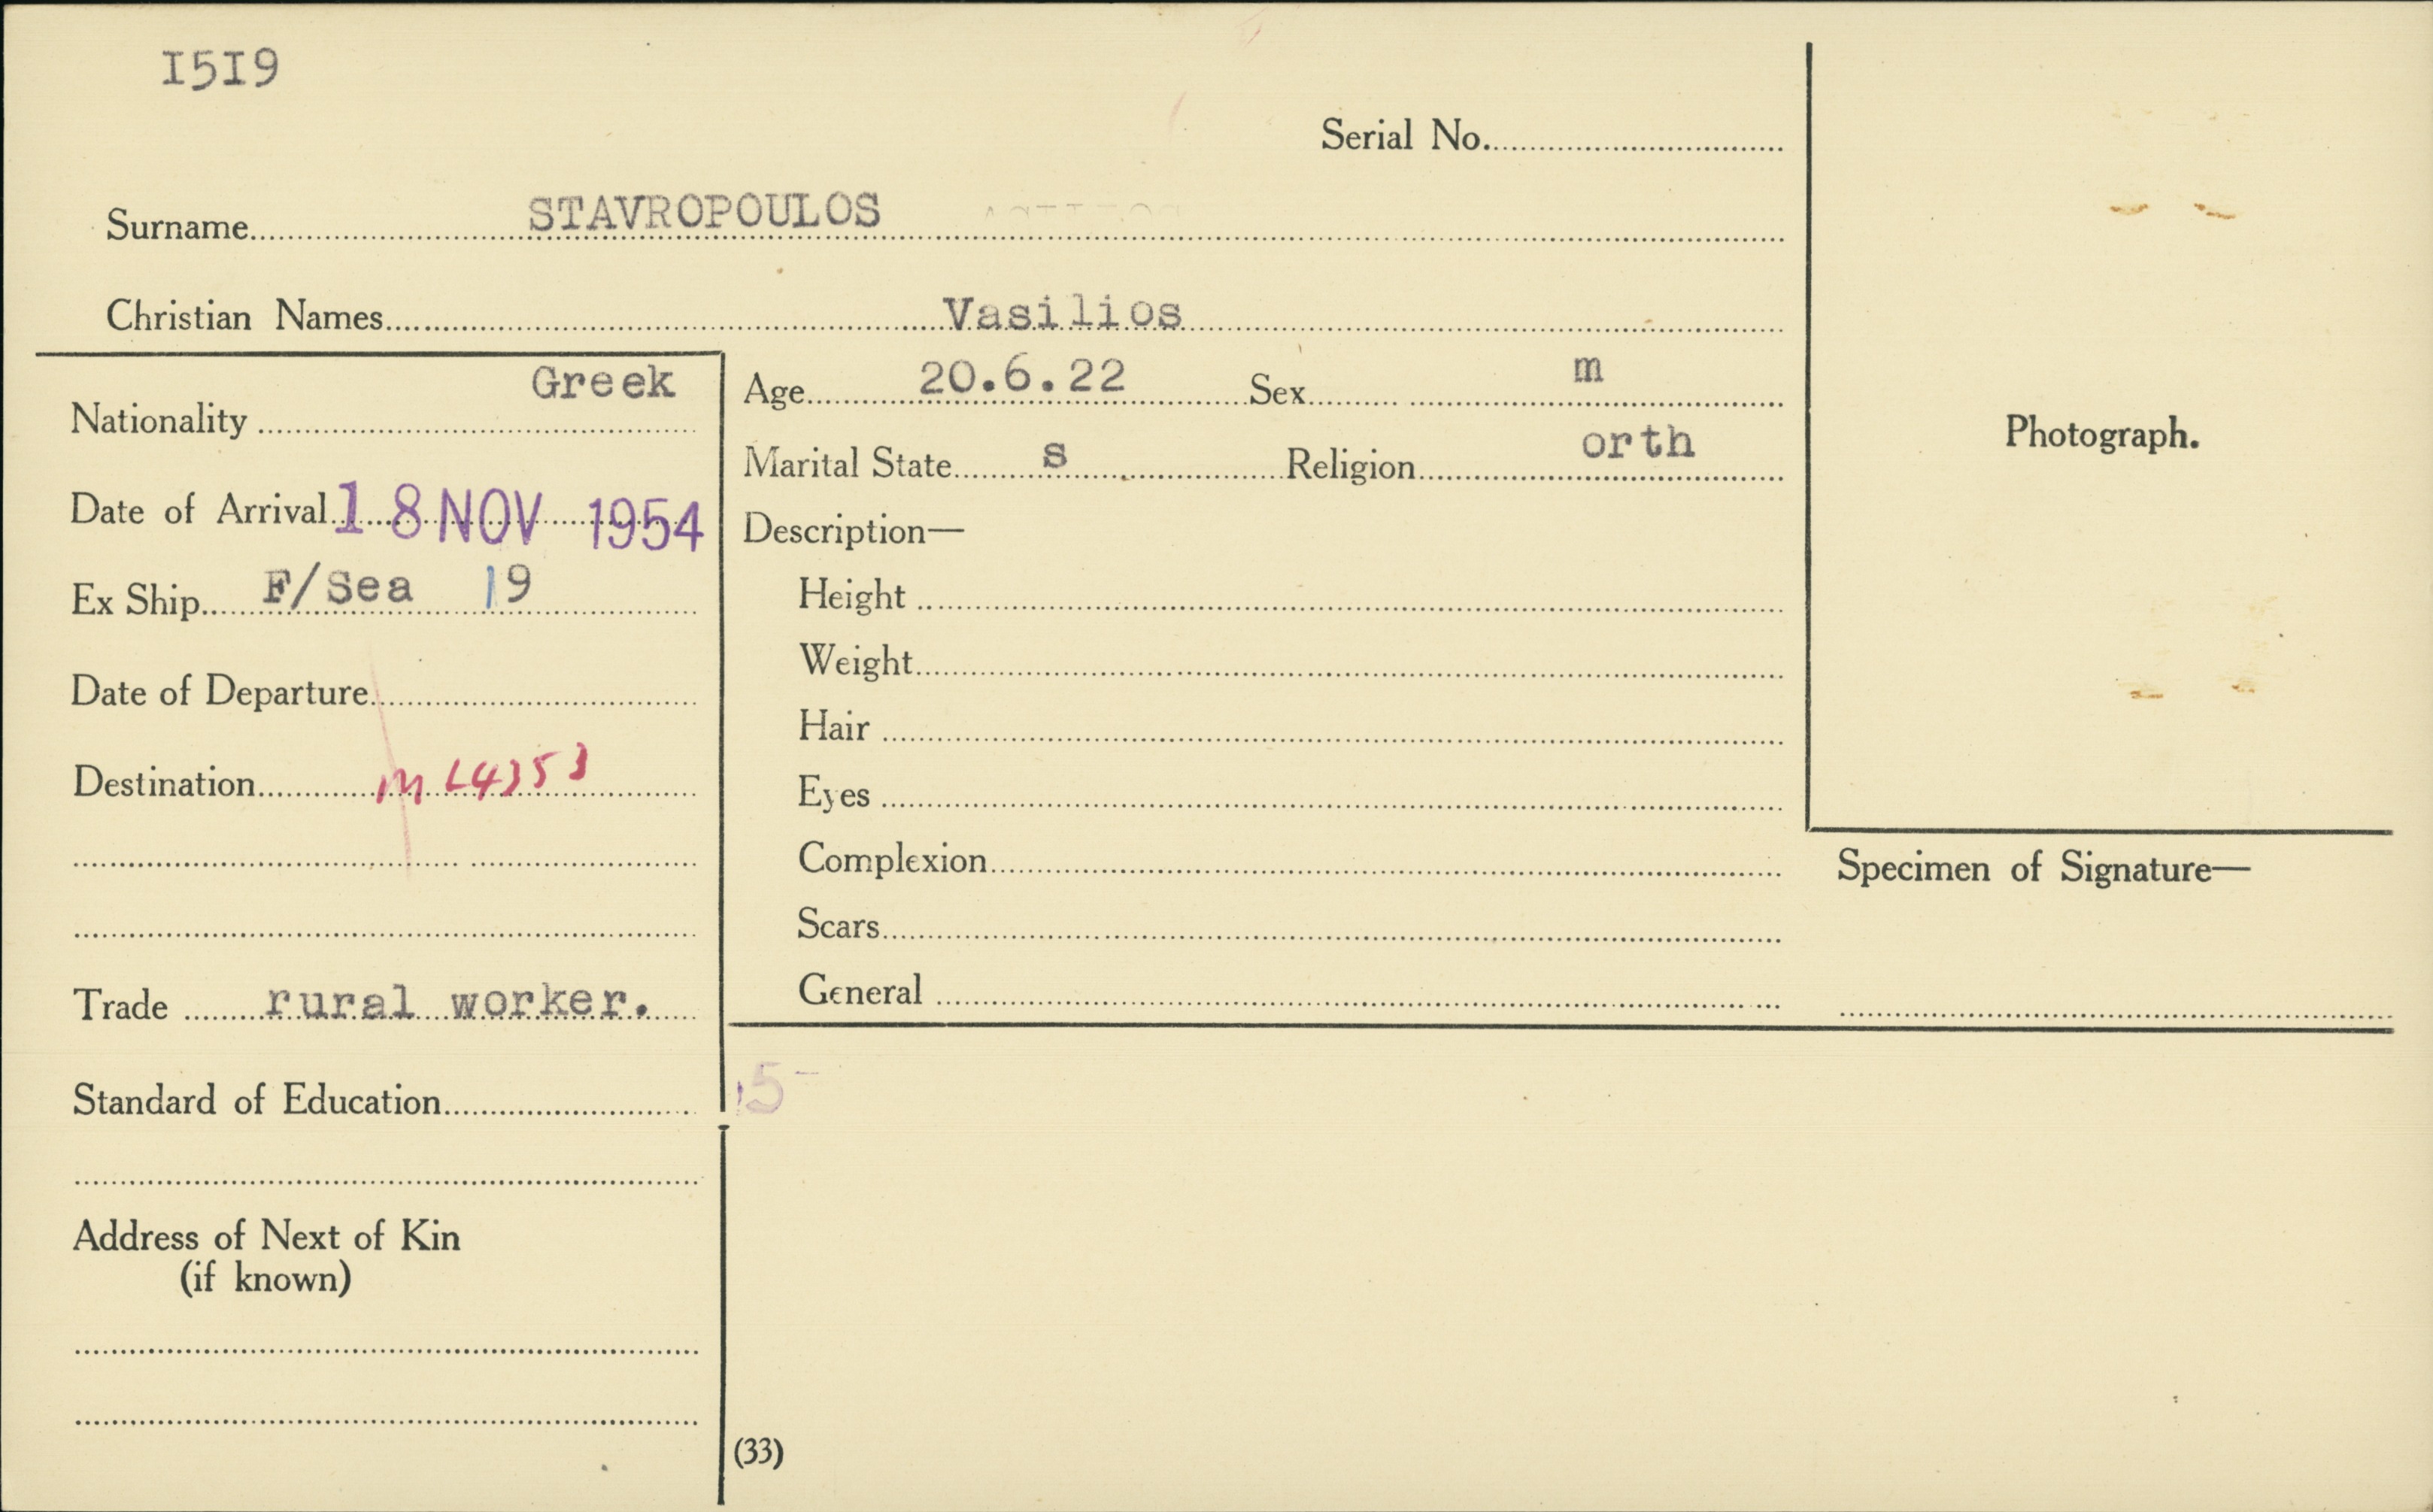 I5I9
Serial No.
Surname STAVROPOULOS
Christian Names Vasilios
Nationality Greek
Date of Arrival 18 NOV 1954
Ex Ship F/Sea 19
Date of Departure
Destination
Trade rural worker.
Standard of Education
Address of Next of Kin
(if known)
Age 20.6.22 Sex m
Marital State s Religion orth
Description—
Height
Weight
Hair
Eyes
Complexion
Scars
General
(33)
Photograph.
Specimen of Signature—